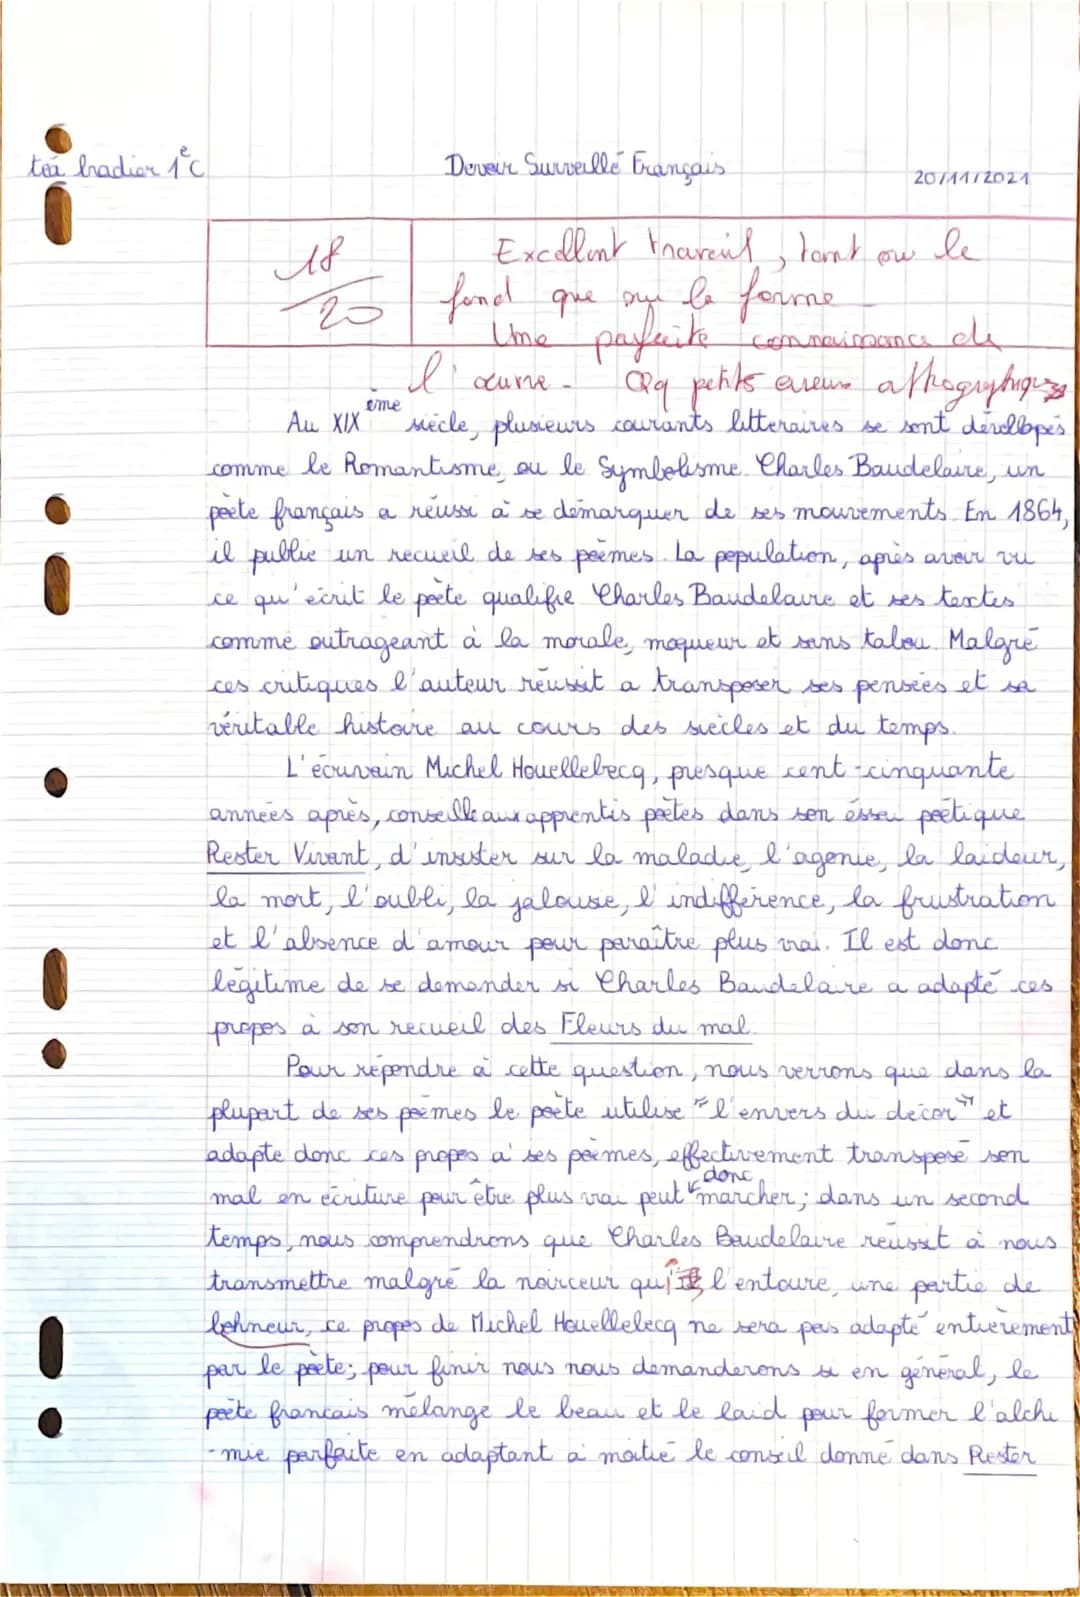 téa bradier 1eC
Devoir Surveillé Français
20/11/2021
18/20
Excellent travail, tant sur le
fond que sur la forme
Une parfaite connaissance de
l'œuvre - Qq petits erreurs
Au XIXème siècle, plusieurs courants littéraires se sont dévellopés
comme le Romantisme, ou le Symbolisme. Charles Baudelaire, un
poète français a réussi à se démarquer de ses mouvements. En 1864,
il publie un recueil de ses poèmes. La population, après avoir vu
ce qu'écrit le poète qualifie Charles Baudelaire et ses textes
comme outrageant à la morale, moqueur et sans tabou. Malgré
ces critiques l'auteur réussit a transposer ses pensées et sa
véritable histoire au cours des siècles et du temps.
L'écrivain Michel Houellebecq, presque cent-cinquante
années après, conseille aux apprentis poètes dans son éssai poètique
Rester Vivant, d'insister sur la maladie, l'agonie, la laideur,
la mort, l'oubli, la jalousie, l'indifférence, la frustration
et l'absence d'amour pour paraître plus vrai. Il est donc
légitime de se demander si Charles Baudelaire a adapté ces
propos à son recueil des Fleurs du mal.
Pour répondre à cette question, nous verrons que dans la
plupart de ses poèmes le poète utilise "l'envers du décor" et
adapte donc ces propos a' ses poèmes, effectivement transposé son
mal en écriture pour être plus vrai peut donc marcher; dans un second
temps, nous comprendrons que Charles Baudelaire réussit à nous
transmettre malgré la noirceur qui l'entoure, une partie de
bohneur, ce propos de Michel Houellebecq ne sera pas adapté entièrement
par le poète; pour finir nous nous demanderons si en général, le
poète francais mélange le beau et le laid pour former l'alchi
-mie parfaite en adaptant a moitié le conseil donné dans Rester